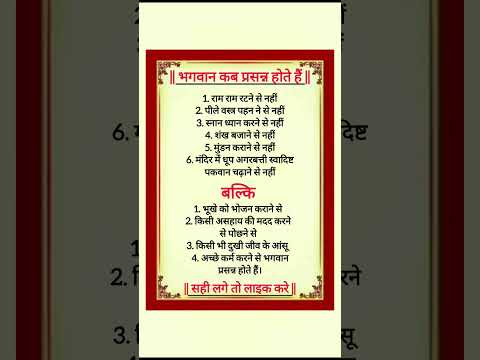 || भगवान कब प्रसन्न होते हैं ||
1. राम राम रटने से नहीं
2. पीले वस्त्र पहन ने से नहीं
3. स्नान ध्यान करने से नहीं
4. शंख बजाने से नहीं
5. मुंडन कराने से नहीं
6. मंदिर में धूप अगरबत्ती स्वादिष्ट
पकवान चढ़ाने से नहीं
बल्कि
1. भूखे को भोजन कराने से
2. किसी असहाय की मदद करने
से पोछने से
3. किसी भी दुखी जीव के आंसू
4. अच्छे कर्म करने से भगवान
प्रसन्न होते हैं।
|| सही लगे तो लाइक करे ||